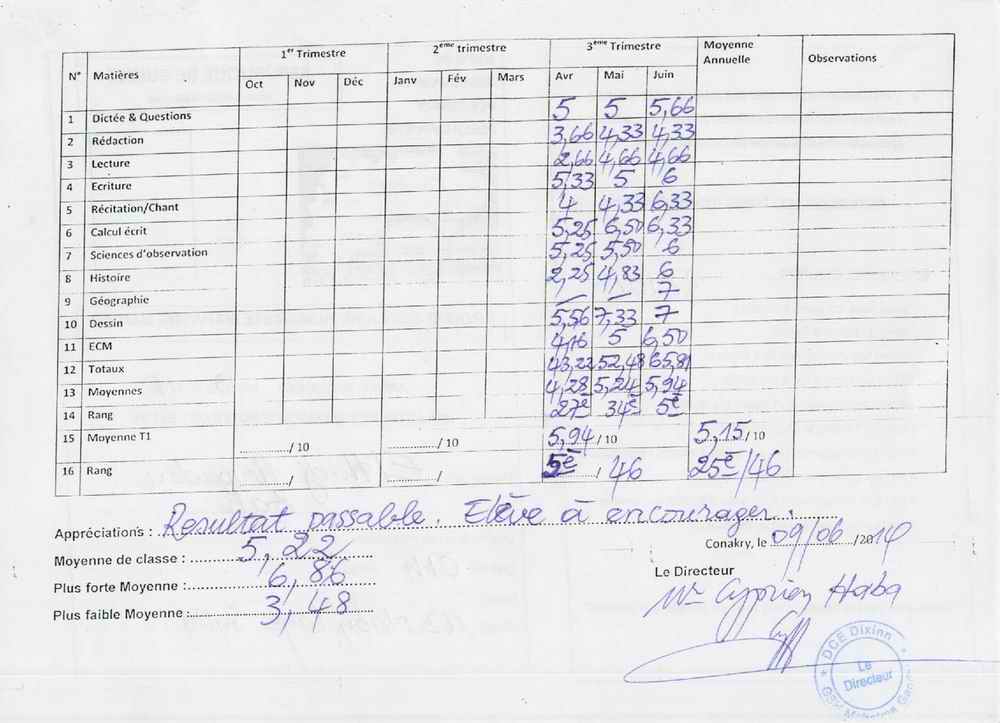 N° Matières 1er Trimestre 2ème trimestre 3ème Trimestre Moyenne Annuelle Observations
Oct Nov Déc Janv Fév Mars Avr Mai Juin
1 Dictée & Questions 5 5 5,66
2 Rédaction 3,66 4,33 4,33
3 Lecture 2,66 4,66 4,66
4 Ecriture 5,33 5 6
5 Récitation/Chant 4 4,33 6,33
6 Calcul écrit 5,25 6,50 6,33
7 Sciences d'observation 5,25 5,50 6
8 Histoire 2,25 4,83 6
9 Géographie — — 7
10 Dessin 5,56 7,33 7
11 ECM 4,16 5 6,50
12 Totaux 43,22 52,48 65,81
13 Moyennes 4,28 5,24 5,94
14 Rang 27e 34e 5e
15 Moyenne T1 ............/ 10 ............/ 10 5,94 / 10 5,15 / 10
16 Rang ............/ ............/ 5e / 46 25e/46
Appréciations : Resultat passable. Elève à encourager.
Moyenne de classe : 5,22
Plus forte Moyenne : 6,86
Plus faible Moyenne : 3,48
Conakry, le 09/06/2014
Le Directeur
Mr Cyprien Haba
DCE Dixinn
Le Directeur